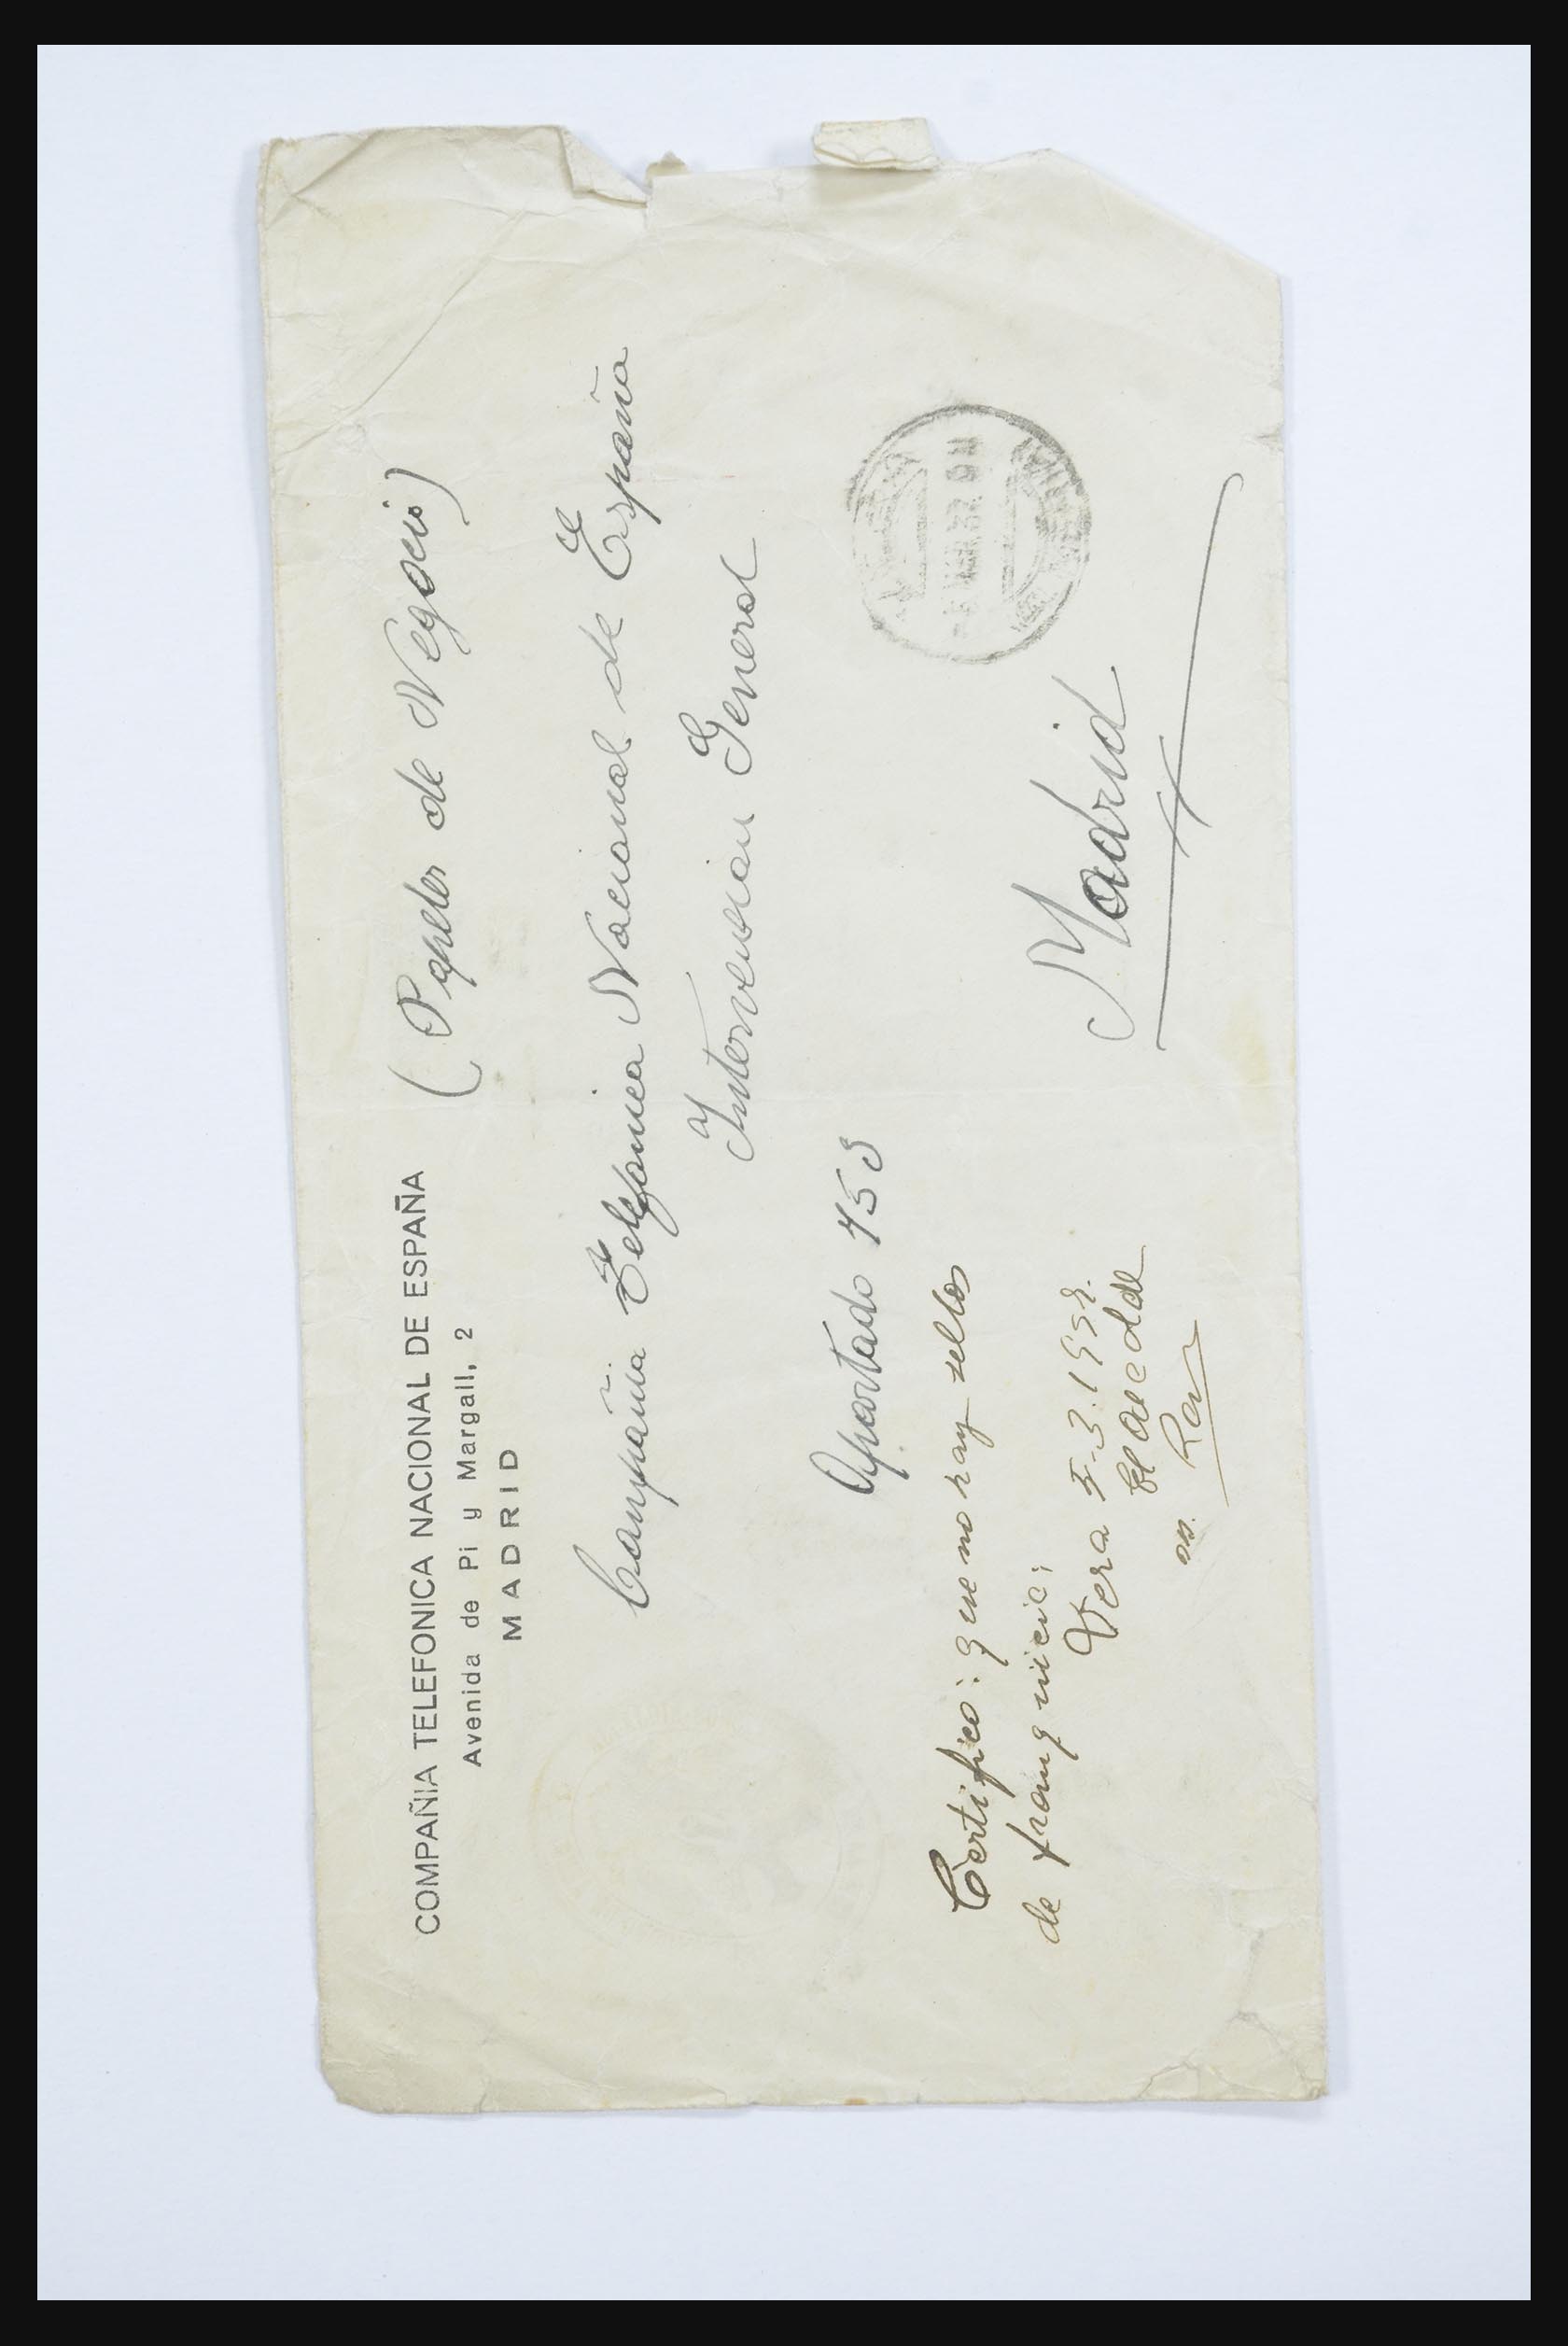 COMPAÑIA TELEFONICA NACIONAL DE ESPAÑA
Avenida de Pi y Margall, 2
MADRID
(Papeles de Negocio)
Compañia Telefonica Nacional de España
Intervencion General
Apartado 753
Madrid
Certifico: que no hay sellos
de franquicia;
Vera 5-3.1937.
El Alcalde